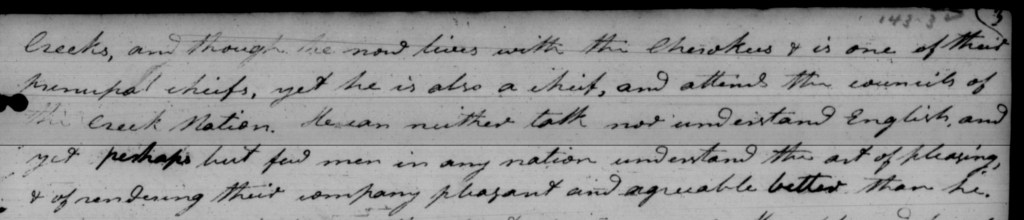 143-32
3
Creeks, and though he now lives with the Cherokees & is one of their
principal chiefs, yet he is also a chief, and attends the councils of
the Creek Nation. He can neither talk nor understand English, and
yet perhaps but few men in any nation understand the art of pleasing,
& of rendering their company pleasant and agreeable better than he.